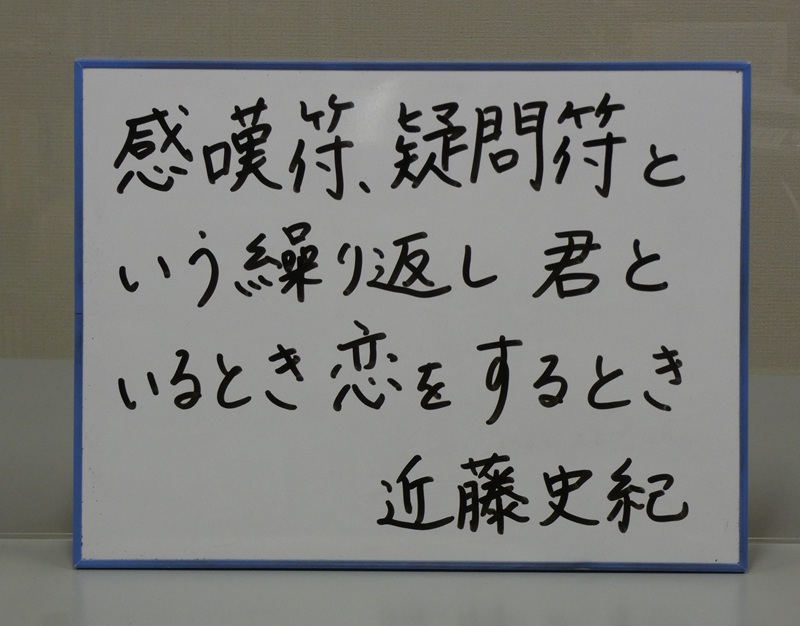 感嘆符、疑問符と
いう繰り返し 君と
いるとき恋をするとき
近藤史紀